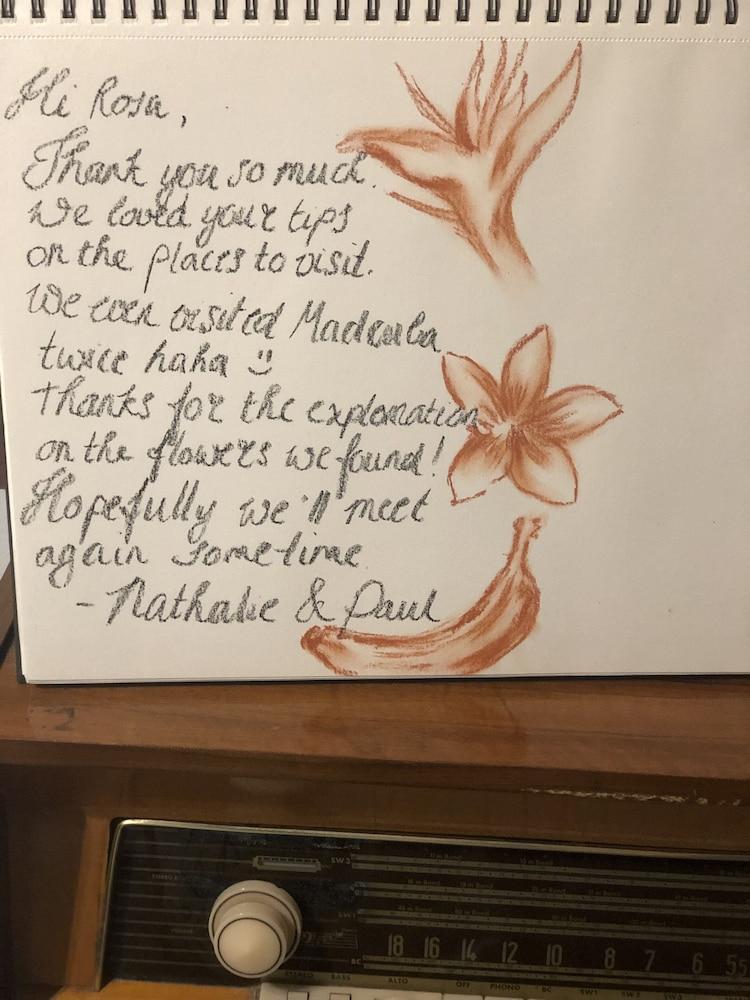 Hi Rosa,
Thank you so much.
We loved your tips
on the places to visit.
We even visited Maderuba
twice haha
Thanks for the explanation
on the flowers we found!
Hopefully we'll meet
again sometime
- Nathalie & Paul
SW2
SW1
18 16 14 12 10 8 7 6 55
BC
STEREO BASS ALTO OFF PHONO BC SW1 SW2